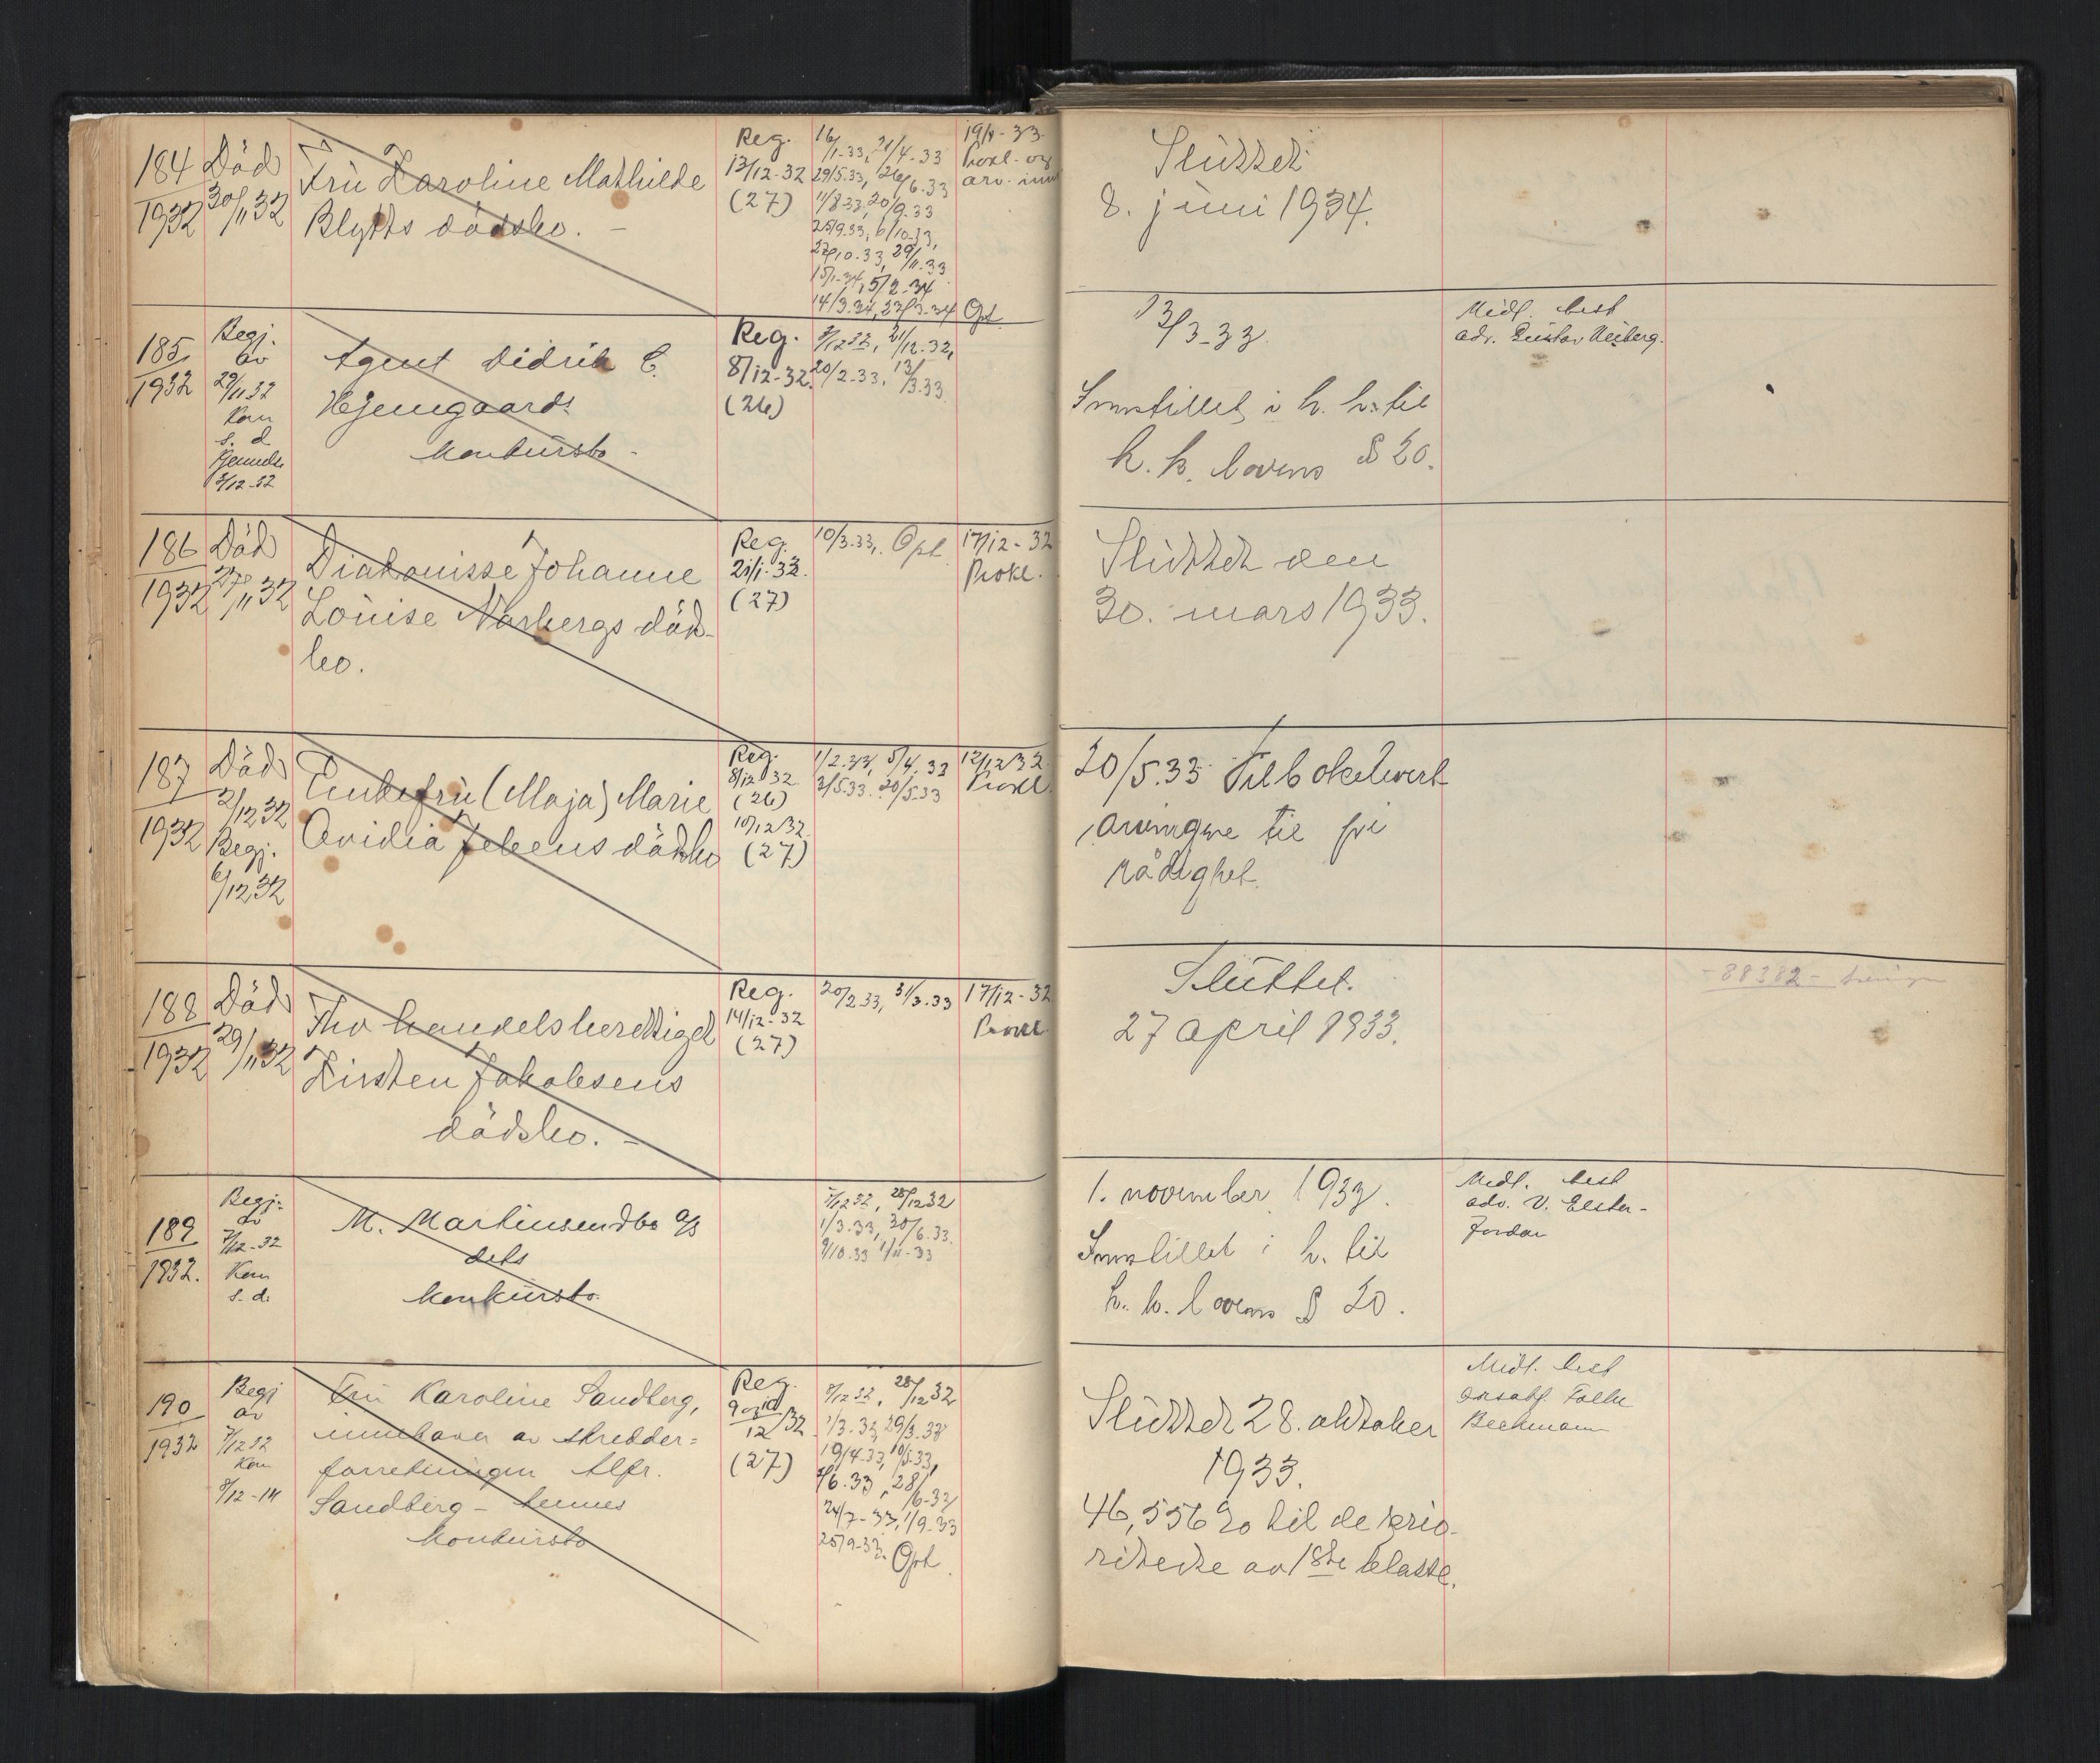 184
1932
Död
30/11 32
Fru Karoline Mathilde
Blytts dödsbo. –
Reg.
13/12-32
(27)
16/1-33, 21/4-33
29/5.33, 26/6.33
11/8 33, 20/9.33
25/9.33, 6/10-33,
27/10-33, 29/11-33
15/1-34, 5/2-34
14/3.34, 23/3-34 Opt
Prokl. og
Sluttet
8. juni 1934.
185
1932
Begj.
av
29/11 32
Kon
s. d
Kjennelse
2/12-32
Agent Didrik C.
Hjemgaards
konkursbo –
Reg.
8/12-32.
(26)
2/12 32, 21/12-32,
20/2-33, 13/3.33.
13/3-33.
Innstillet i h. h. til
k. k. lovens § 20.
Midl. best
adv. Gustav Heiberg.
186
1932
Död
27/11 32
Diakonisse Johanne
Louise Norbergs döds-
bo.
Reg.
21/1-33.
(27)
10/3.33, Opt.
17/12-32
Prokl.
Sluttet den
30. mars 1933.
187
1932
Död
2/12 32
Begj.
6/12 32
Enkefru (Maja) Marie
Ovidia Jebens dödsbo
Reg.
8/12 32
(26)
10/12 32.
(27)
1/2.33, 5/4.33
3/5.33. 20/5.33
12/12 32
Prokl.
20/5.33 Tilbakelevert
arvingene til fri
rådighet.
188
1932
Död
29/11 32
Fhv handelsberettiget
Kirsten Jakobsens
dödsbo. –
Reg.
14/12-32
(27)
20/2 33, 31/3.33
17/12-32
Prokl.
Sluttet.
27 april 1933.
-88382-
189
1932.
Begj.
av
7/12-32
Kon
s. d.
M. Martinsen & Co A/S
dets
konkursbo.
7/12 32, 28/12 32
1/3.33, 30/6.33.
9/10.33 1/11-33
1. november 1933.
Innstillet i h. til
k. k. lovens § 20.
Midl. best
adv. V. Elster-
Jordan
190
1932
Begj
av
7/12 32
Kon
8/12-14
Fru Karoline Sandberg,
innehaver av skredder-
forretningen Alfr.
Sandberg – hennes
konkursbo
Reg.
9 og 10/12 32
(27)
8/12 32, 28/12 32
1/3.33, 29/3.33
19/4.33, 10/5.33,
7/6.33, 28/6-33
24/7-33, 1/9.33
25/9-33. Opt.
Sluttet 28. oktober
1933.
46,556 20 til de prio-
riterte av 1ste klasse.
Midl. best
orsakf. Folke
Beckmann